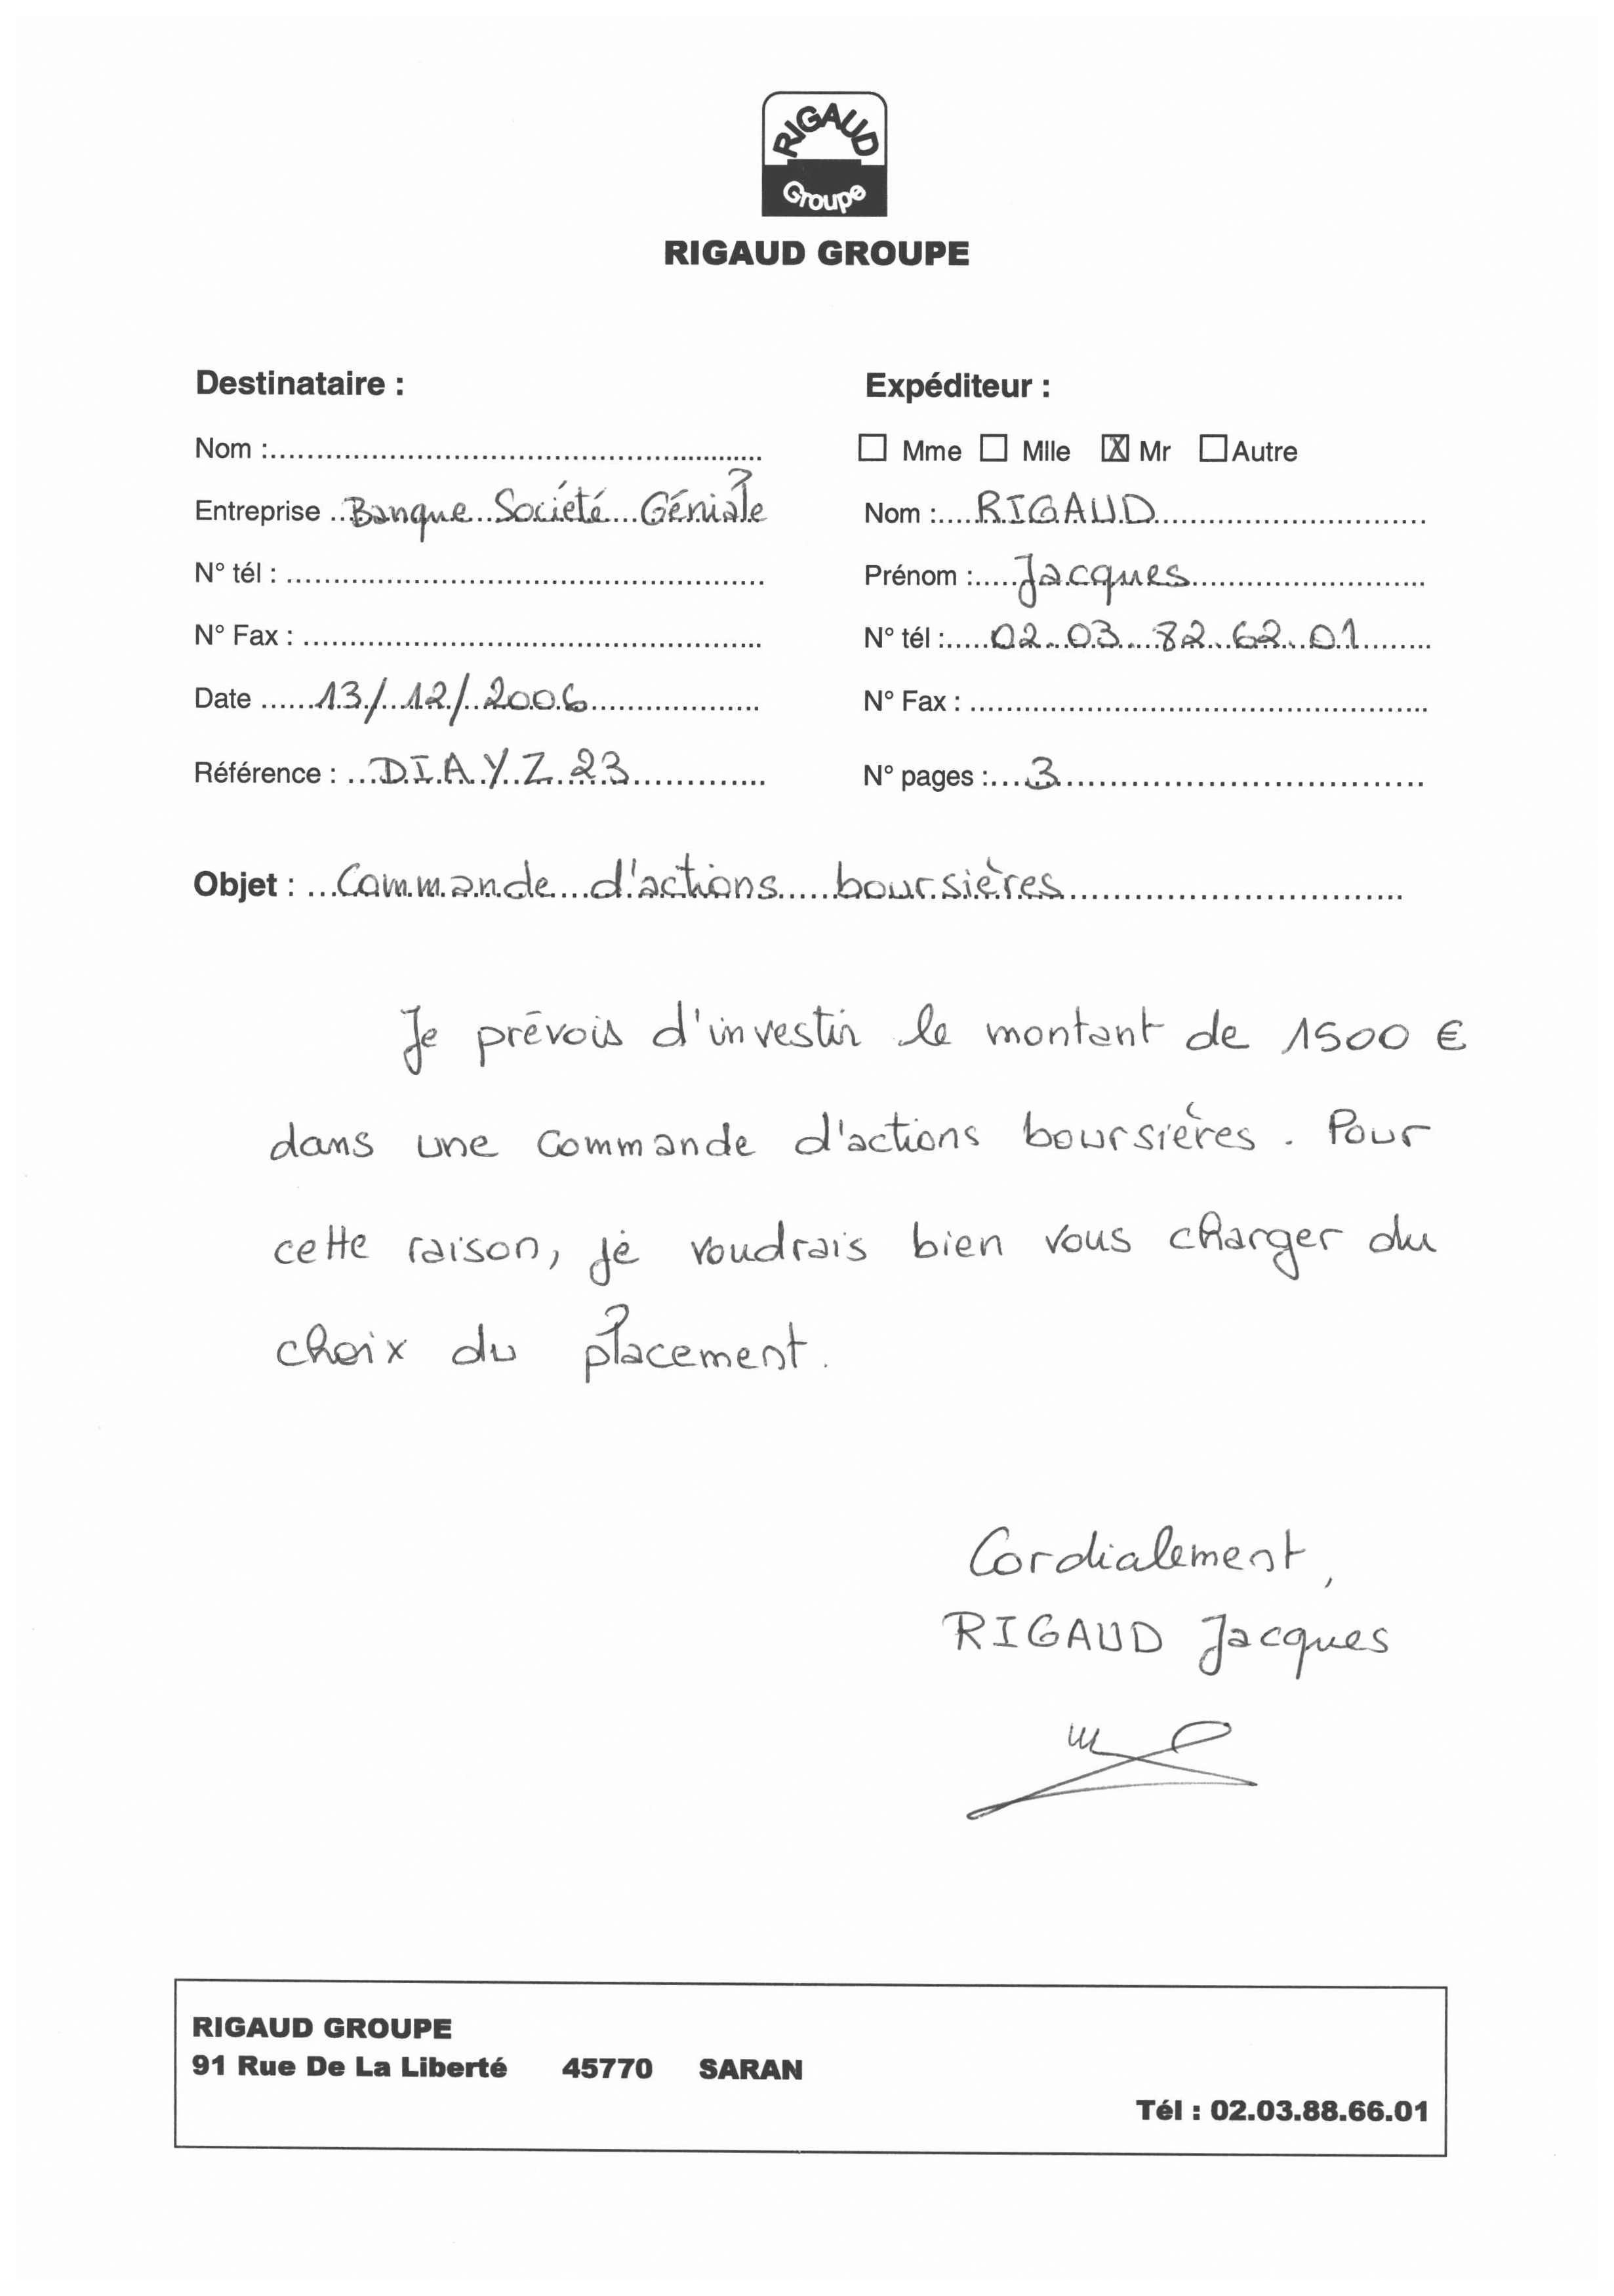 RIGAUD
Groupe
RIGAUD GROUPE
Destinataire :
Nom :
Entreprise Banque Société Géniale
N° tél :
N° Fax :
Date 13/12/2006
Référence : DIAYZ23
Expéditeur :
☐ Mme ☐ Mlle ☒ Mr ☐ Autre
Nom : RIGAUD
Prénom : Jacques
N° tél : 02 03 82 62 01
N° Fax :
N° pages : 3
Objet : Commande d'actions boursières
Je prévois d'investir le montant de 1500 €
dans une commande d'actions boursières. Pour
cette raison, je voudrais bien vous charger du
choix du placement.
Cordialement,
RIGAUD Jacques
RIGAUD GROUPE
91 Rue De La Liberté 45770 SARAN
Tél : 02.03.88.66.01